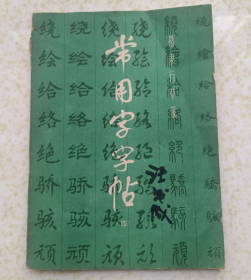 绕绘给络绝骄骇顽
绕绘给络绝骄骇顽
绕绘给络绝骄骇顽
常用字字帖
繞繪給絡絕驕駭頑
绕绘给络绝骄骇顽